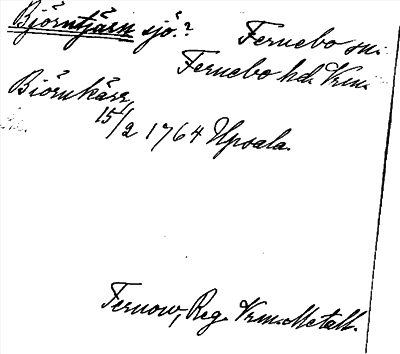 Björntjärn sjö? Fernebo sn.
Fernebo hd. Vrm.
Biörnkärr,
15/2 1764 Upsala.
Fernow, Reg. Vrm. Metall.